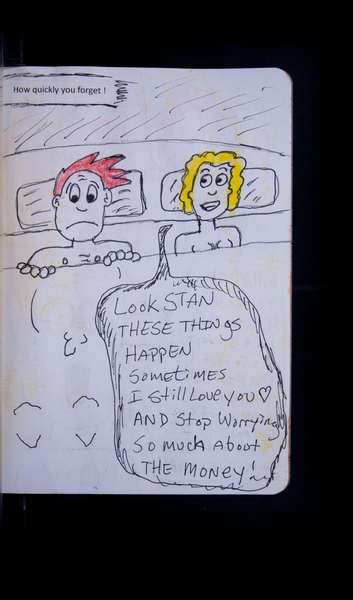 How quickly you forget !
Look STAN
THESE THINgs
HAPPEN
Sometimes
I Still Love you♡
AND Stop Worrying
So much About
THE MONEY!